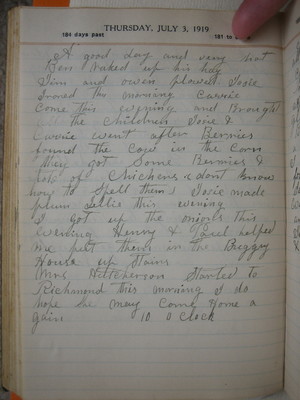 THURSDAY, JULY 3, 1919
184 days past
181 to
A good day and very hot
Ben Raked up his hay
Jim and owen plowed Josie
Ironed this morning Carrie
Come this evening and Brought
all the children Josie &
Carrie went after Berries
found the Cow in the Corn
They got Some Berries &
lots of Chickens (dont know
how to Spell them) Josie made
plum Jellie this evening
I got up the onions this
evening Henry & helped
me put them in the Buggy
House up Stairs
Mrs Hetcherson Started to
Richmond this morning I do
hope she may Come Home a
gain 10 O Clock